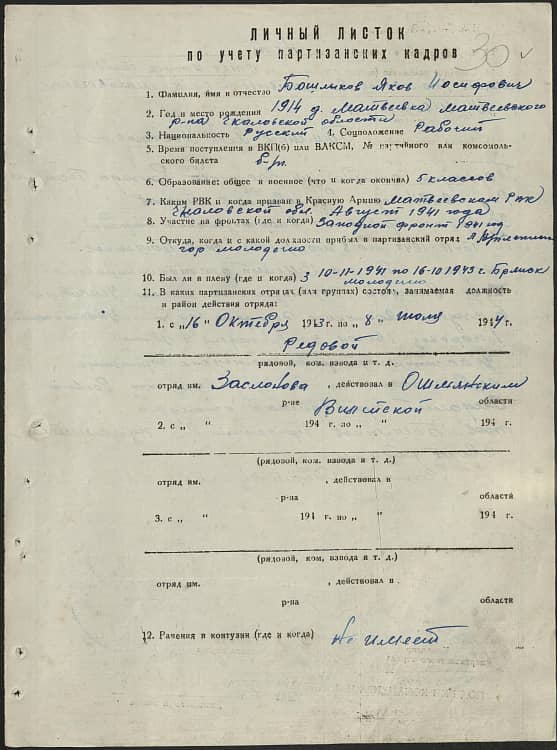 ЛИЧНЫЙ ЛИСТОК
по учету партизанских кадров
30
1. Фамилия, имя и отчество Башлыков Яков Иосифович
2. Год и место рождения 1914 д. Матвеевка Матвеевского
р-на Чкаловской области
3. Национальность Русский 4. Соцположение Рабочий
5. Время поступления в ВКП(б) или ВЛКСМ, № партийного или комсомоль-
ского билета б/п.
6. Образование: общее и военное (что и когда окончил) 5 классов
7. Каким РВК и когда призван в Красную Армию Матвеевским РВК
Чкаловской обл. Август 1941 года
8. Участие на фронтах (где и когда) Западной фронт 1941 год
9. Откуда, когда и с какой должности прибыл в партизанский отряд
гор молодечно
10. Был ли в плену (где и когда) з 10-11-1941 по 16-10-1943 г. Брянск
молодечно
11. В каких партизанских отрядах (или группах) состоял, занимаемая должность
и район действия отряда:
1. с „16" Октября 1943 г. по „8" Июля 1944 г.
Редовой
рядовой, ком. взвода и т. д.
отряд им. Заслонова, действовал в Ошмянским
р-не Вилейской области
2. с „ " 194 г. по „ " 194 г.
(рядовой, ком. взвода и т. д.)
отряд им. , действовал в
р-на области
3. с „ " 194 г. по „ " 194 г.
(рядовой, ком. взвода и т. д.)
отряд им. , действовал в
р-на области
12. Ранения и контузии (где и когда) Не имеет